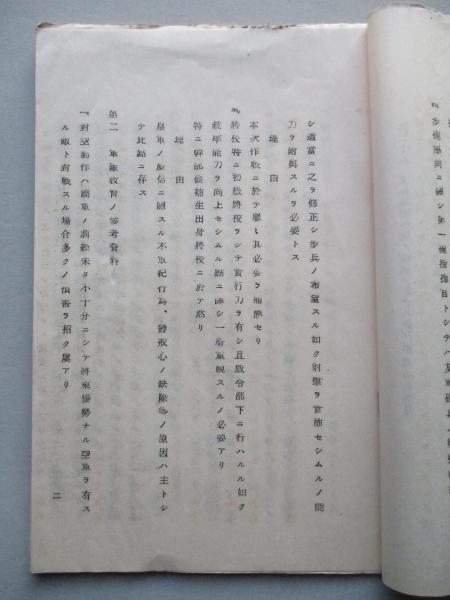 シ適當ニ之ヲ修正シ步兵ノ希望スル如ク射擊ヲ實施セシムルノ能
力ヲ附與スルヲ必要トス
理由
本次作戰ニ於テ屢〻其必要ヲ痛感セリ
將校特ニ初級將校ヲシテ實行力ヲ有シ且威令部下ニ行ハルル如ク
統率能力ヲ向上セシムル點ニ關シ一層重視スルノ必要アリ
特ニ幹部候補生出身將校ニ於テ然リ
理由
皇軍ノ威信ニ關スル不軍紀行爲、警戒心ノ缺除等ノ原因ハ主トシ
テ此點ニ存ス
第二 軍隊敎育ノ參考資料
一、對空動作ハ國軍ノ訓練未タ不十分ニシテ將來優勢ナル空軍ヲ有ス
ル敵ト對戰スル場合多クノ損害ヲ招ク虞アリ
二